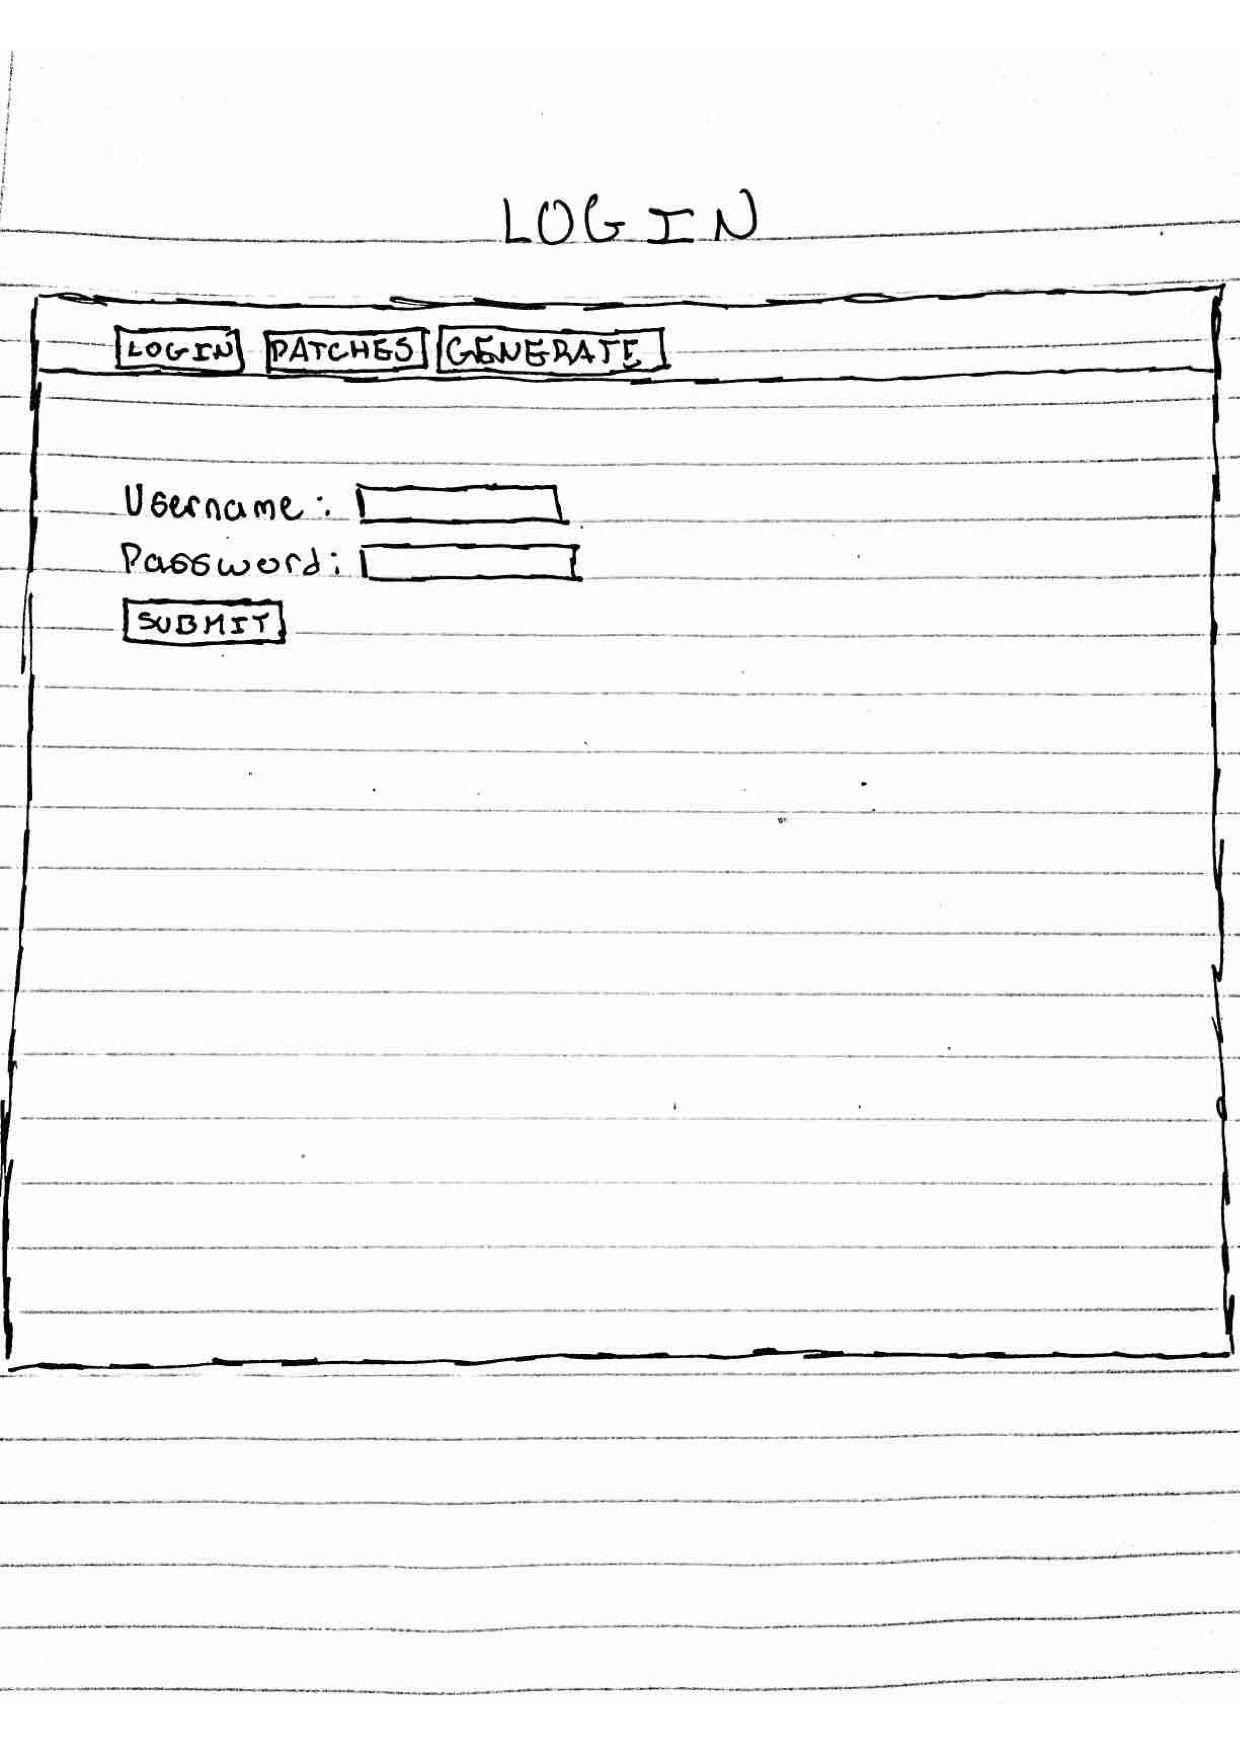 LOGIN
LOGIN PATCHES GENERATE
Username:
Password:
SUBMIT